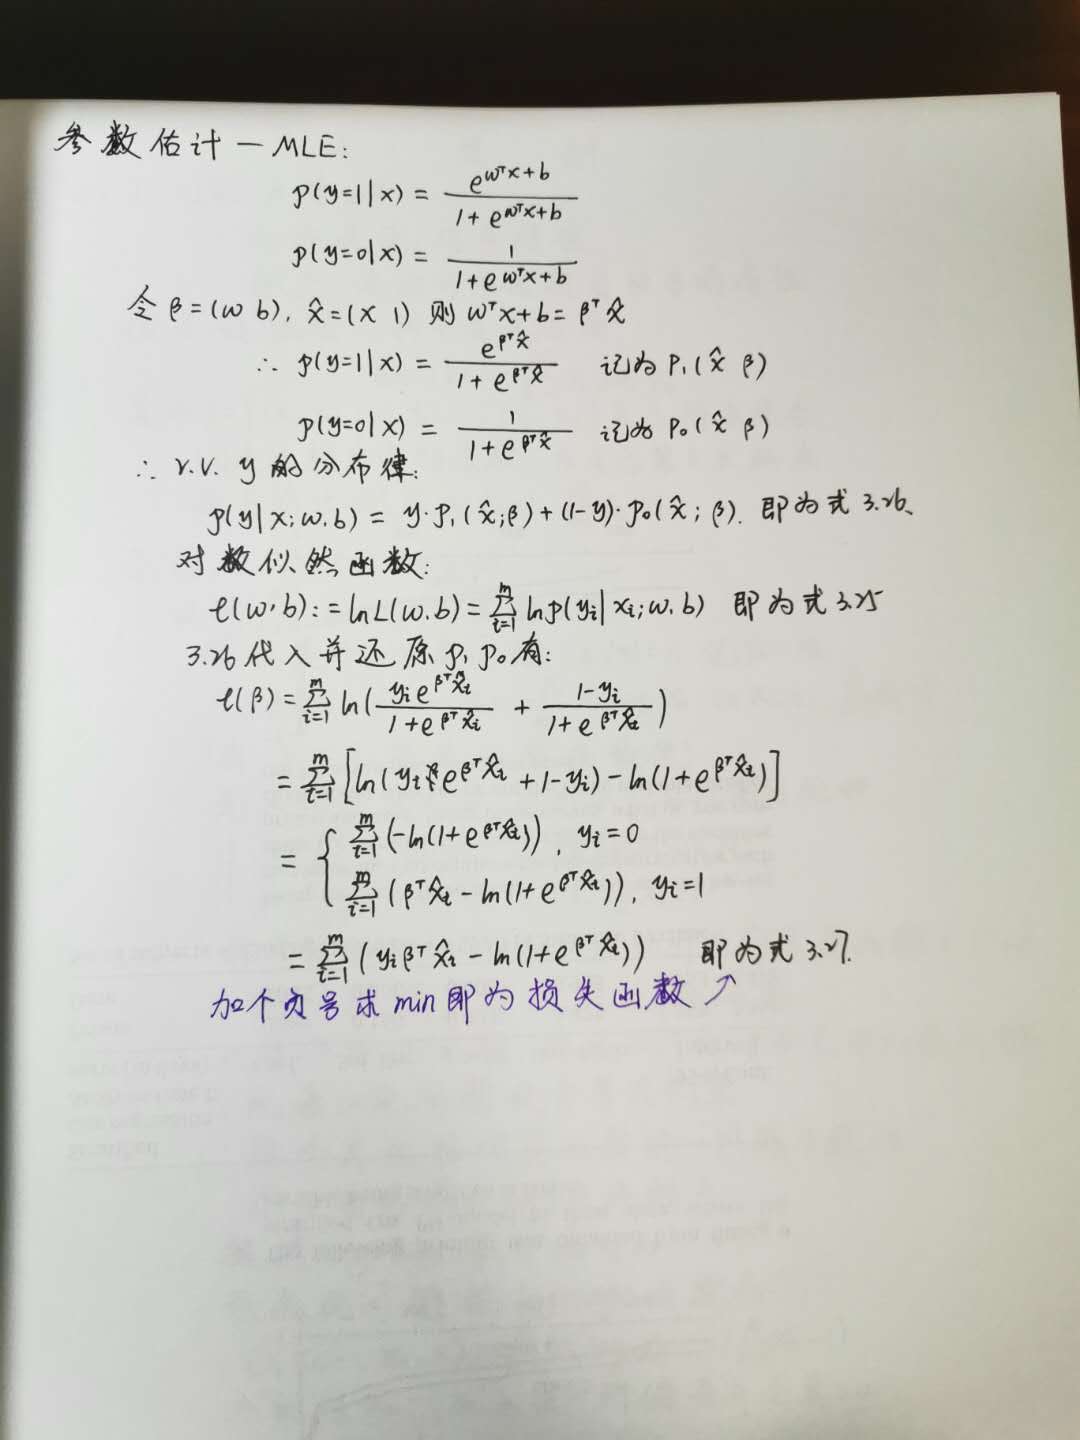 参数估计 — MLE:
p(y=1|x) = e^{wᵀx+b} / (1 + e^{wᵀx+b})
p(y=0|x) = 1 / (1 + e^{wᵀx+b})
令 β=(w b), x̂=(x 1) 则 wᵀx+b = βᵀx̂
∴ p(y=1|x) = e^{βᵀx̂} / (1 + e^{βᵀx̂}) 记为 P₁(x̂ β)
p(y=0|x) = 1 / (1 + e^{βᵀx̂}) 记为 P₀(x̂ β)
∴ r.v. y 的分布律:
p(y|x; w.b) = y·p₁(x̂;β) + (1-y)·p₀(x̂; β). 即为式 3.26.
对数似然函数:
ℓ(w,b) := ln L(w.b) = Σ_{i=1}^{m} ln p(yᵢ|xᵢ; w.b) 即为式 3.25
3.26代入并还原 p₁ p₀ 有:
ℓ(β) = Σ_{i=1}^{m} ln( yᵢe^{βᵀx̂ᵢ} / (1+e^{βᵀx̂ᵢ}) + (1-yᵢ) / (1+e^{βᵀx̂ᵢ}) )
= Σ_{i=1}^{m} [ln(yᵢe^{βᵀx̂ᵢ} + 1-yᵢ) - ln(1+e^{βᵀx̂ᵢ})]
= { Σ_{i=1}^{m} (-ln(1+e^{βᵀx̂ᵢ})), yᵢ=0
Σ_{i=1}^{m} (βᵀx̂ᵢ - ln(1+e^{βᵀx̂ᵢ})), yᵢ=1
= Σ_{i=1}^{m} (yᵢβᵀx̂ᵢ - ln(1+e^{βᵀx̂ᵢ})) 即为式 3.27.
加个负号求min即为损失函数↗